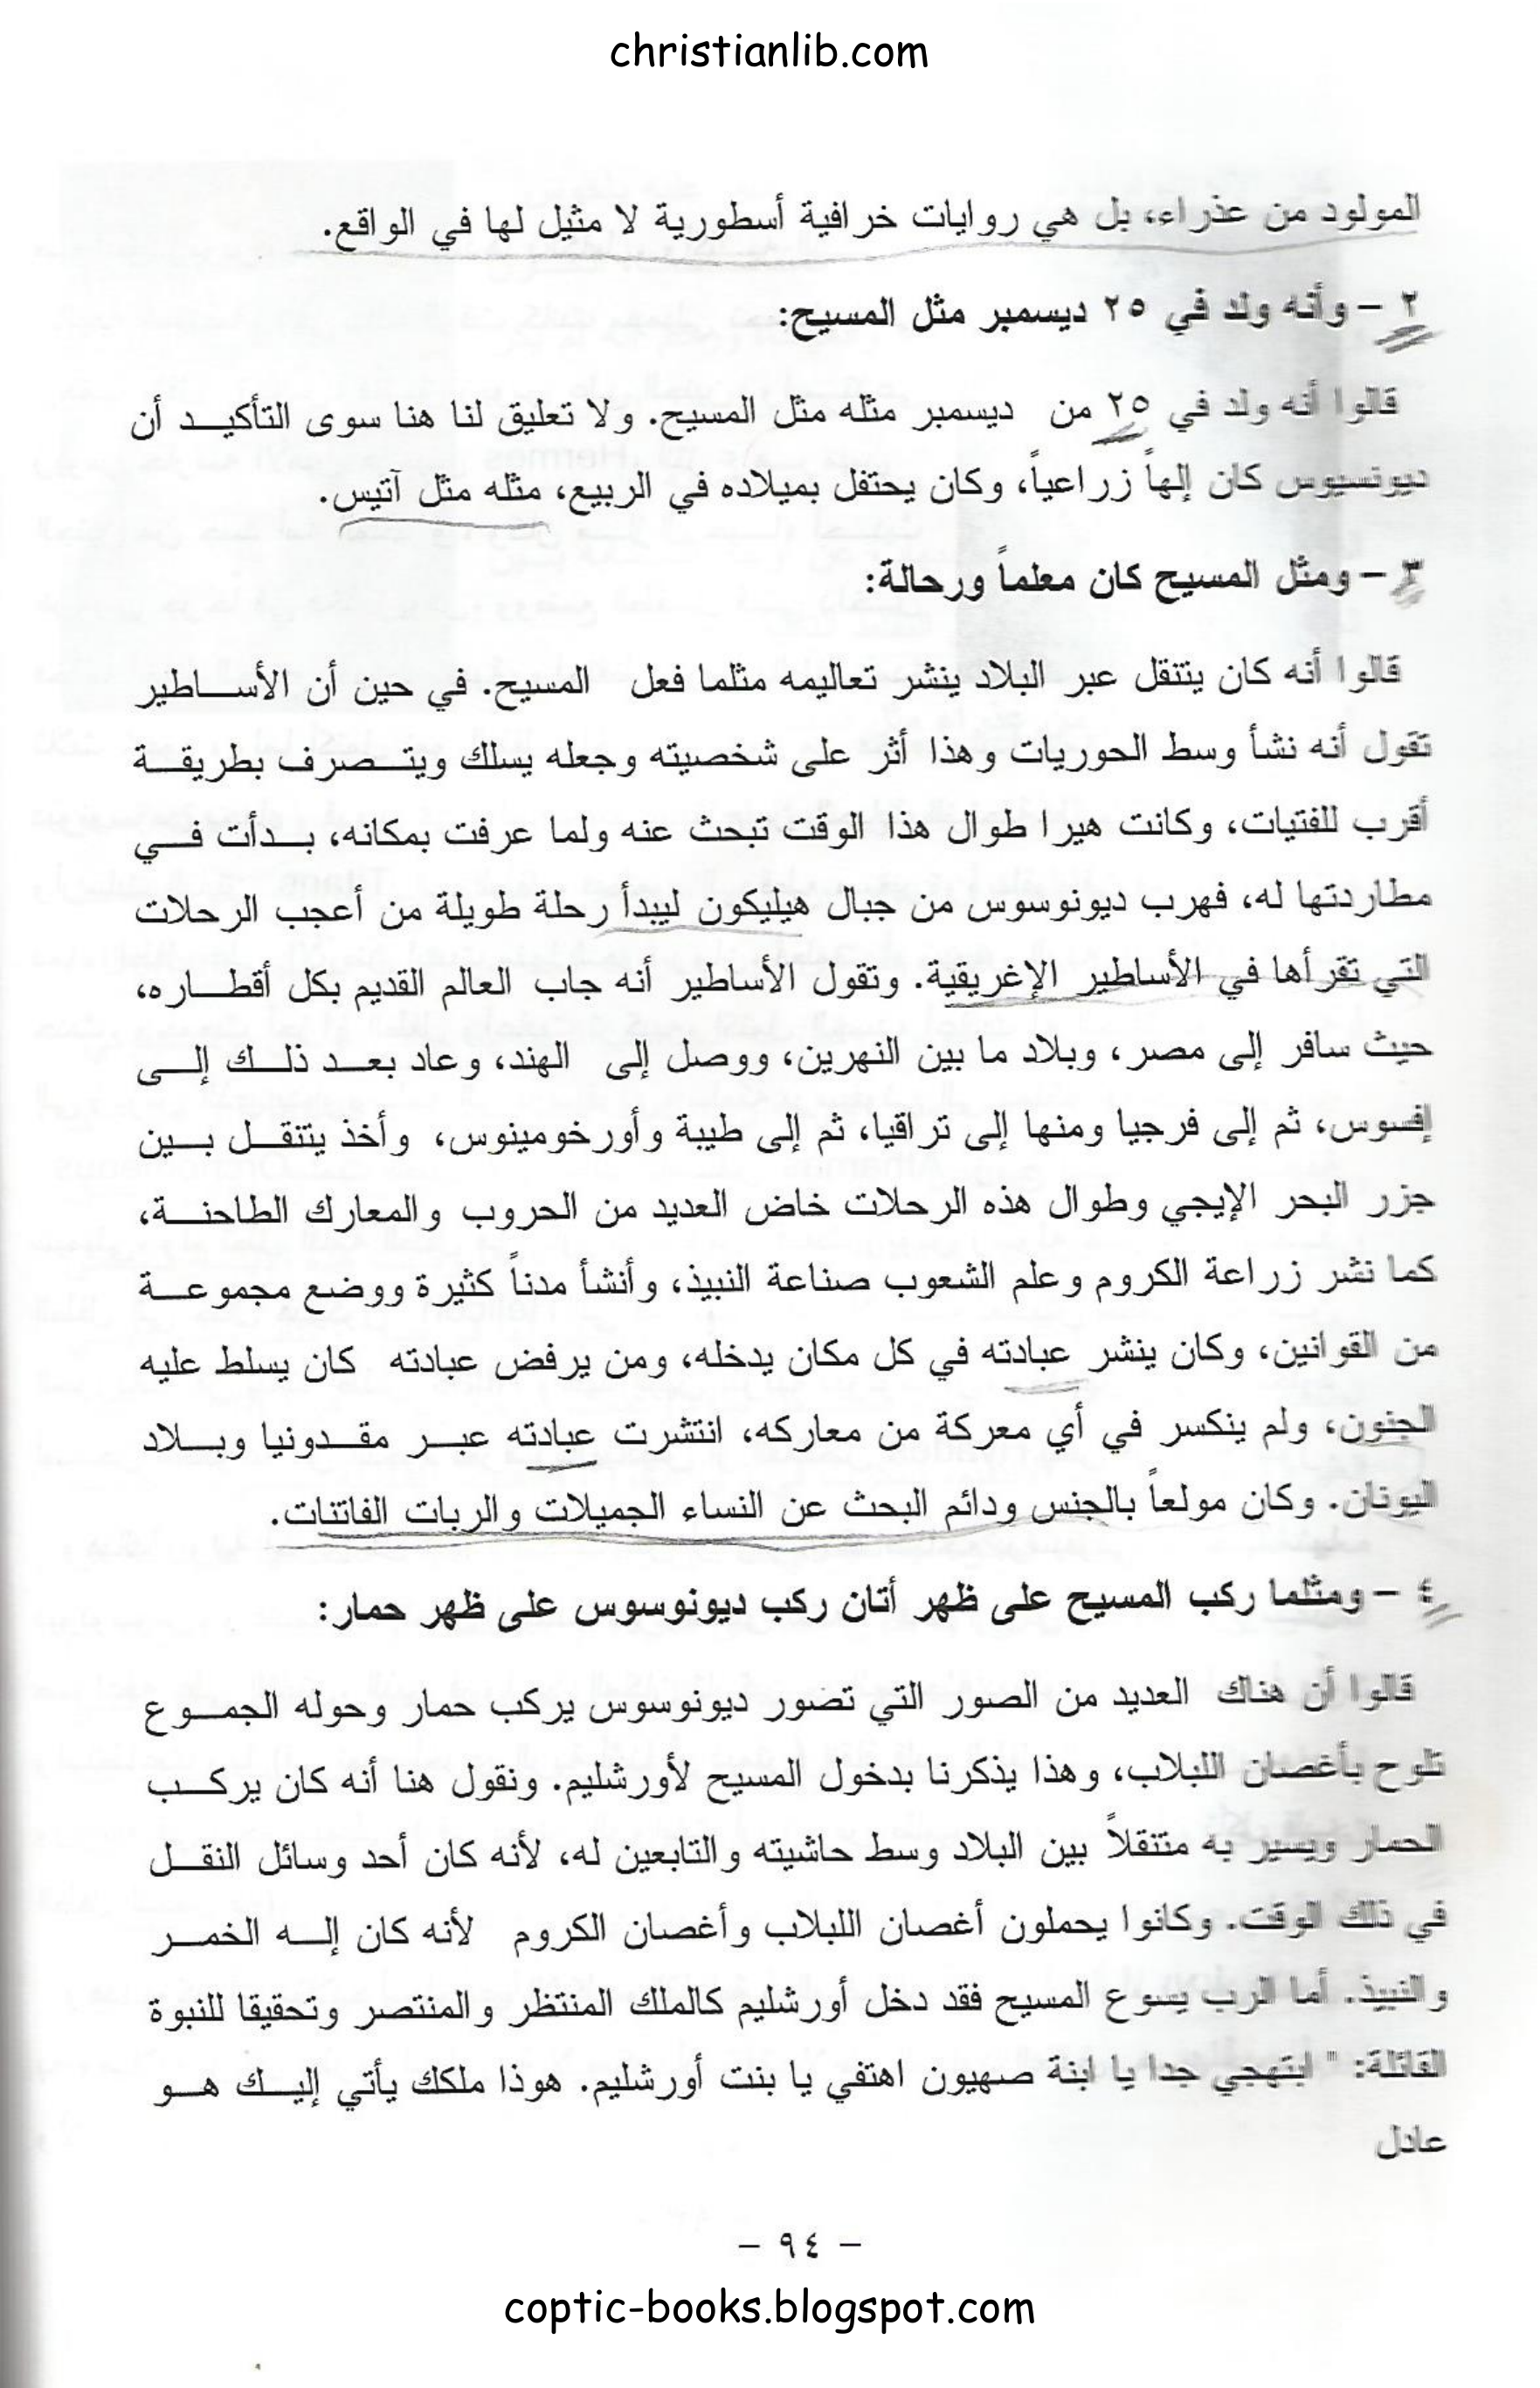 christianlib.com
المولود من عذراء، بل هي روايات خرافية أسطورية لا مثيل لها في الواقع.
٢ – وأنه ولد في ٢٥ ديسمبر مثل المسيح:
قالوا أنه ولد في ٢٥ من ديسمبر مثله مثل المسيح. ولا تعليق لنا هنا سوى التأكيد أن
ديونسيوس كان إلهاً زراعياً، وكان يحتفل بميلاده في الربيع، مثله مثل آتيس.
٣ – ومثل المسيح كان معلماً ورحالة:
قالوا أنه كان يتنقل عبر البلاد ينشر تعاليمه مثلما فعل المسيح. في حين أن الأساطير
تقول أنه نشأ وسط الحوريات وهذا أثر على شخصيته وجعله يسلك ويتصرف بطريقة
أقرب للفتيات، وكانت هيرا طوال هذا الوقت تبحث عنه ولما عرفت بمكانه، بدأت في
مطاردتها له، فهرب ديونوسوس من جبال هيليكون ليبدأ رحلة طويلة من أعجب الرحلات
التي تقرأها في الأساطير الإغريقية. وتقول الأساطير أنه جاب العالم القديم بكل أقطاره،
حيث سافر إلى مصر، وبلاد ما بين النهرين، ووصل إلى الهند، وعاد بعد ذلك إلى
إفسوس، ثم إلى فرجيا ومنها إلى تراقيا، ثم إلى طيبة وأورخومينوس، وأخذ يتنقل بين
جزر البحر الإيجي وطوال هذه الرحلات خاض العديد من الحروب والمعارك الطاحنة،
كما نشر زراعة الكروم وعلم الشعوب صناعة النبيذ، وأنشأ مدناً كثيرة ووضع مجموعة
من القوانين، وكان ينشر عبادته في كل مكان يدخله، ومن يرفض عبادته كان يسلط عليه
الجنون، ولم ينكسر في أي معركة من معاركه، انتشرت عبادته عبر مقدونيا وبلاد
اليونان. وكان مولعاً بالجنس ودائم البحث عن النساء الجميلات والربات الفاتنات.
٤ – ومثلما ركب المسيح على ظهر أتان ركب ديونوسوس على ظهر حمار:
قالوا أن هناك العديد من الصور التي تصور ديونوسوس يركب حمار وحوله الجموع
تلوح بأغصان اللبلاب، وهذا يذكرنا بدخول المسيح لأورشليم. ونقول هنا أنه كان يركب
الحمار ويسير به متنقلاً بين البلاد وسط حاشيته والتابعين له، لأنه كان أحد وسائل النقل
في ذلك الوقت. وكانوا يحملون أغصان اللبلاب وأغصان الكروم لأنه كان إله الخمر
والنبيذ. أما الرب يسوع المسيح فقد دخل أورشليم كالملك المنتظر والمنتصر وتحقيقا للنبوة
القائلة: " ابتهجي جدا يا ابنة صهيون اهتفي يا بنت أورشليم. هوذا ملكك يأتي إليك هو
عادل
– ٩٤ –
coptic-books.blogspot.com